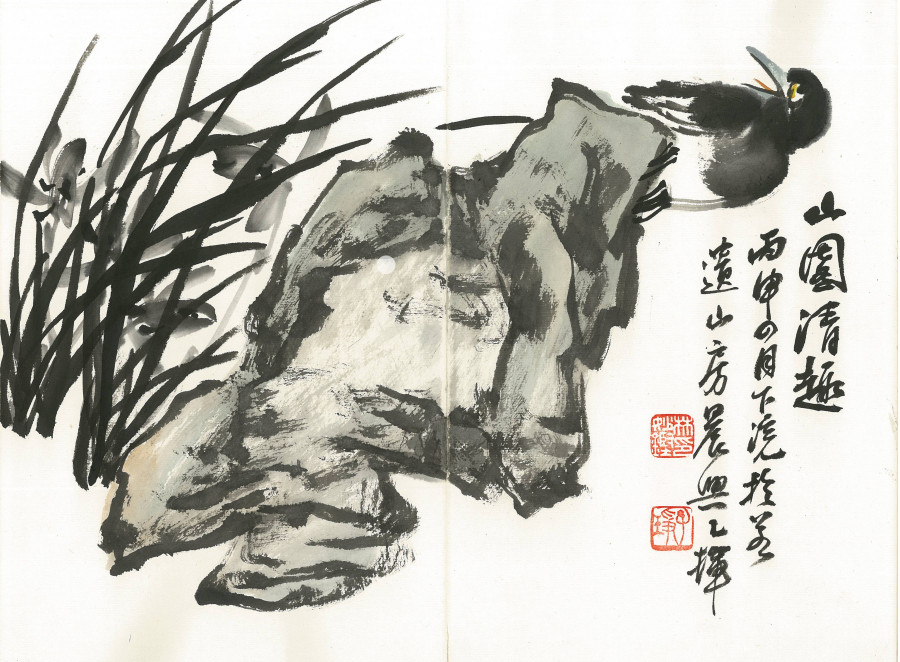 山園清趣
丙申四月下浣於若
遺山房晨興之揮